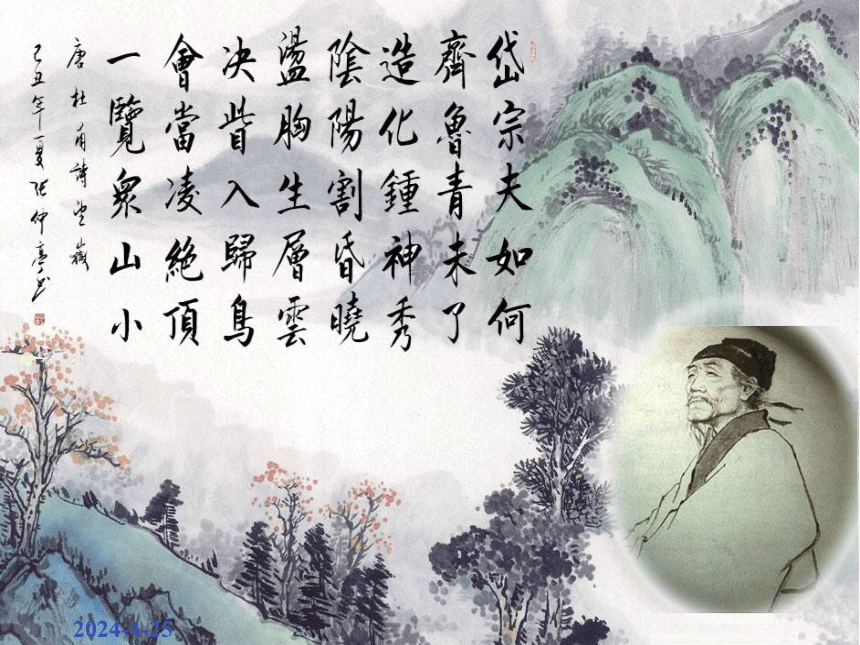 岱宗夫如何
齊魯青未了
造化鍾神秀
陰陽割昏曉
盪胸生層雲
決眥入歸鳥
會當凌絕頂
一覽眾山小
唐杜甫詩望嶽
己丑年夏張仲亭書
2024-4-25